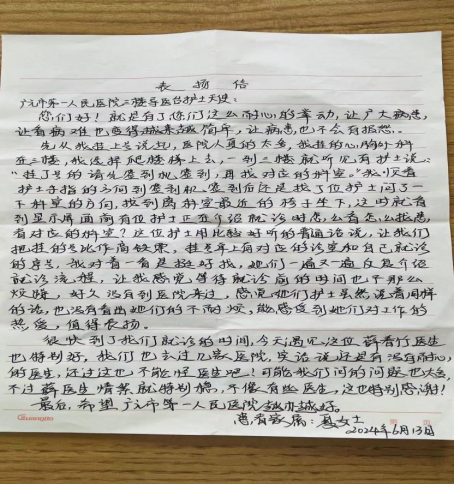 表扬信
广元市第一人民医院三楼导医台护士天使:
您们好!就是有了你们这么耐心的举动,让广大病患,
让看病难也变得越来越简单,让病患也不会有报怨。
先从我挂上号说起,医院人真的太多,我挂的心胸外科
在三楼,我选择爬楼梯上去,一到三楼就听见有护士说:
“挂了号的请先签到机签到,再找对应的科室。”我顺着
护士手指的方向到签到机签到后还是找了位护士问了一
下科室的方向,找到离科室最近的椅子坐下,这时就看
到显示屏面前有位护士正在介绍就诊时怎么看怎么找患
者对应的科室?这位护士用比较好听的普通话说,让我们
把挂的号比作高铁票,挂号单上有对应的诊室和自己就诊
的序号,我对着一看是挺好找,她们一遍又一遍反复介绍
就诊流程,让我感觉等待就诊前的时间也不那么
烦躁,好久没有到医院来过,感觉她们护士虽然说着同样
的话,也没有看出她们的不耐烦,能感受到她们对工作的
热爱,值得表扬。
很快到了我们就诊的时间,今天遇见这位薛香竹医生
也特别好,我们也去过几家医院,实话说还是有没有耐心
的医生,还过这也不能怪医生吧!可能我们问的问题也太多,
不过薛医生情绪就特别稳,不像有些医生,这也特别感谢!
最后,希望广元市第一人民医院越办越好。
患者家属:聂女士
2024年6月13日